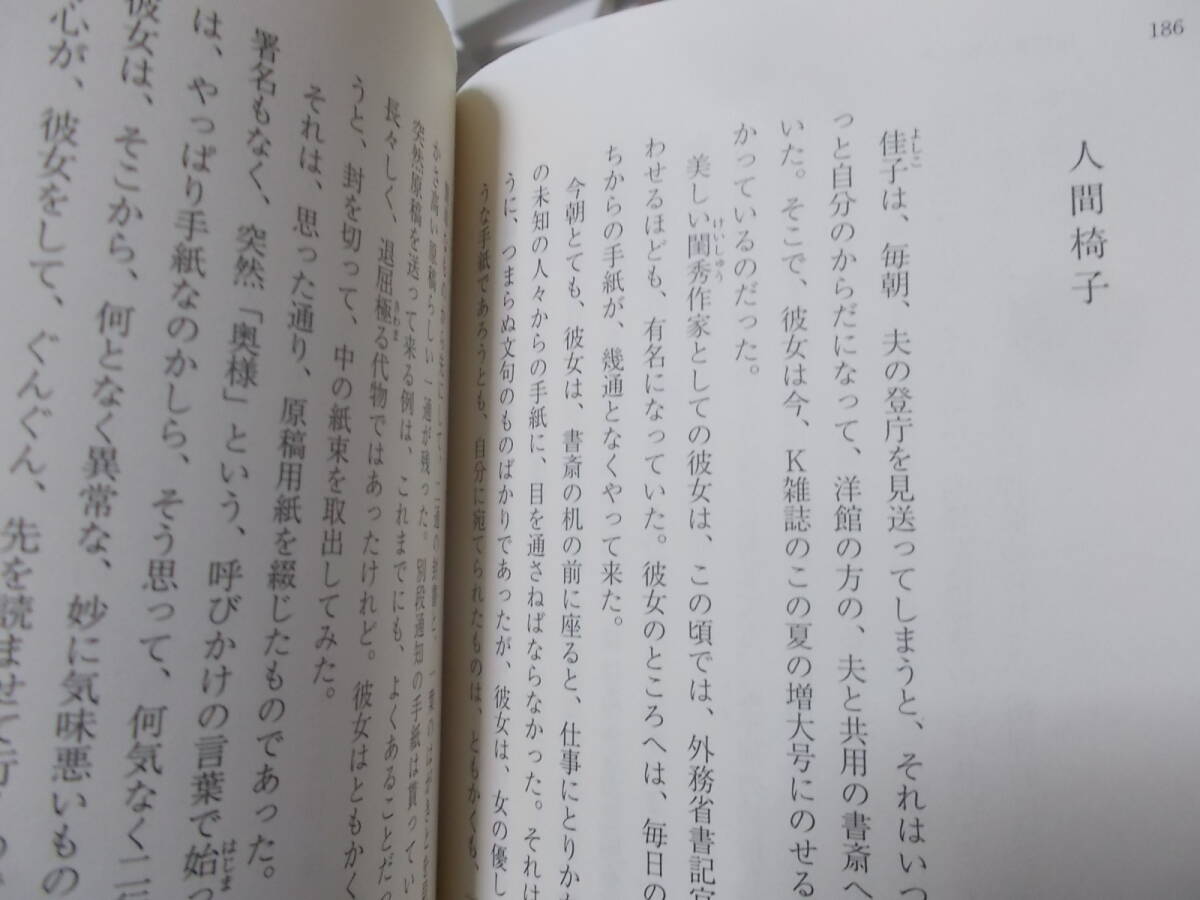 186
人間椅子
佳子は、毎朝、夫の登庁を見送ってしまうと、それはいつ
よしこ
っと自分のからだになって、洋館の方の、夫と共用の書斎へ
いた。そこで、彼女は今、K雑誌のこの夏の増大号にのせる
かっているのだった。
美しい閨秀作家としての彼女は、この頃では、外務省書記官
けいしゅう
わせるほども、有名になっていた。彼女のところへは、毎日の
ちからの手紙が、幾通となくやって来た。
今朝とても、彼女は、書斎の机の前に座ると、仕事にとりかか
の未知の人々からの手紙に、目を通さねばならなかった。それは
うに、つまらぬ文句のものばかりであったが、彼女は、女の優し
うな手紙であろうとも、自分に宛てられたものは、ともかくも、
かさ高い原稿らしい一通が残った。別段通知の手紙は貰ってい
突然原稿を送って来る例は、これまでにも、よくあることだっ
長々しく、退屈極る代物ではあったけれど。彼女はともかく
きわま
うと、封を切って、中の紙束を取出してみた。
それは、思った通り、原稿用紙を綴じたものであった。
署名もなく、突然「奥様」という、呼びかけの言葉で始っ
はじま
は、やっぱり手紙なのかしら、そう思って、何気なく二
彼女は、そこから、何となく異常な、妙に気味悪いもの
心が、彼女をして、ぐんぐん、先を読ませて行